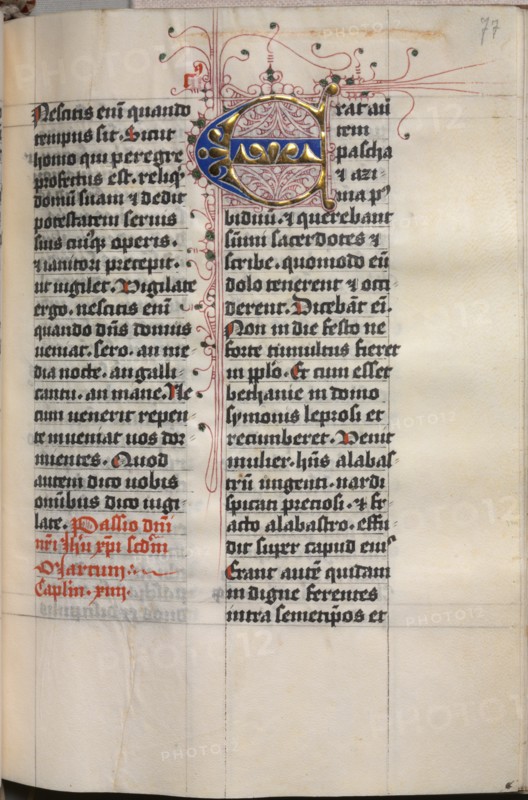 77
Nescitis eni͞ quando
tempus sit. Sicut
homo qui peregre
profectus est. reliq͛
domu͞ suam ⁊ dedit
potestatem seruis
suis cui͛q͛ operis.
⁊ ianitori precepit.
ut uigilet. Vigilate
ergo. nescitis eni͞
quando dn͞s domus
ueniat. sero. an me
dia nocte. an galli
cantu. an mane. Ne
cum uenerit repen
te inueniat uos dor
mientes. Quod
autem dico uobis
omnibus dico uigi
late. Passio dn͞i
nr͞i ih͞u xp͞i scd͞m
Marcum.
Cap͞lm. xiiii.
Erat au͞
tem
pascha
⁊ azi
ma p͛
biduu͞. ⁊ querebant
su͞mi sacerdotes ⁊
scribe. quomodo eu͞
dolo tenerent ⁊ occi
derent. Diceba͞t ei͞.
Non in die festo ne
forte tumultus fieret
in pp͞lo. Et cum esset
bethanie in domo
symonis leprosi et
recumberet. Venit
mulier. hn͞s alabas
tru͞ ungenti. nardi
spicati preciosi. ⁊ fr
acto alabastro. effu
dit super capud ei͛
Erant aute͞ quidam
in digne ferentes
intra semetip͞os et
PHOTO12